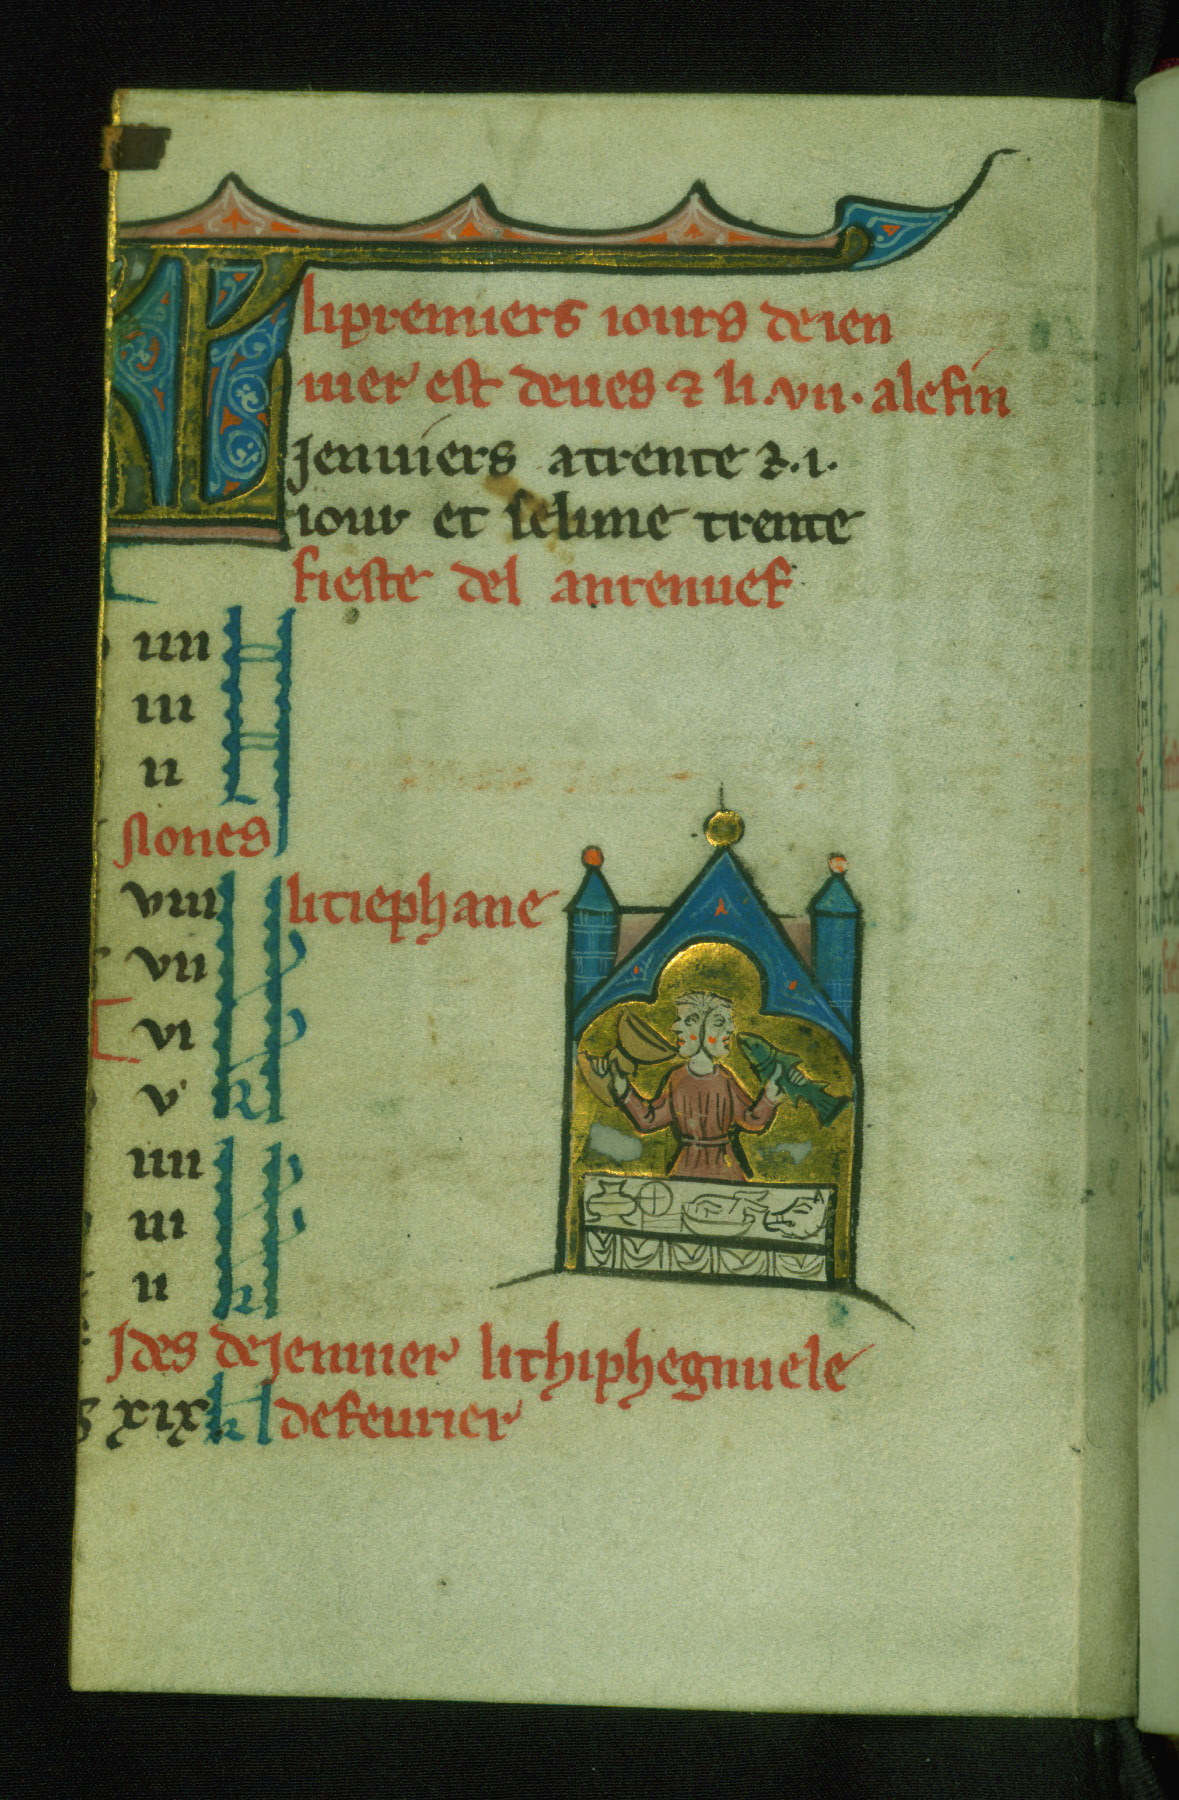 KL lipremiers iours deien
uier est deues ⁊ li .vii. alefin
Jenuiers atrente ⁊ .i.
iour et selune trente
fieste del anrenuef
iiii
iii
ii
Nones
viii kl litiephane
vii
vi
v
iiii
iii
ii kl
Jdes deJenuier lithiphegnuele
g xix kl defeurier